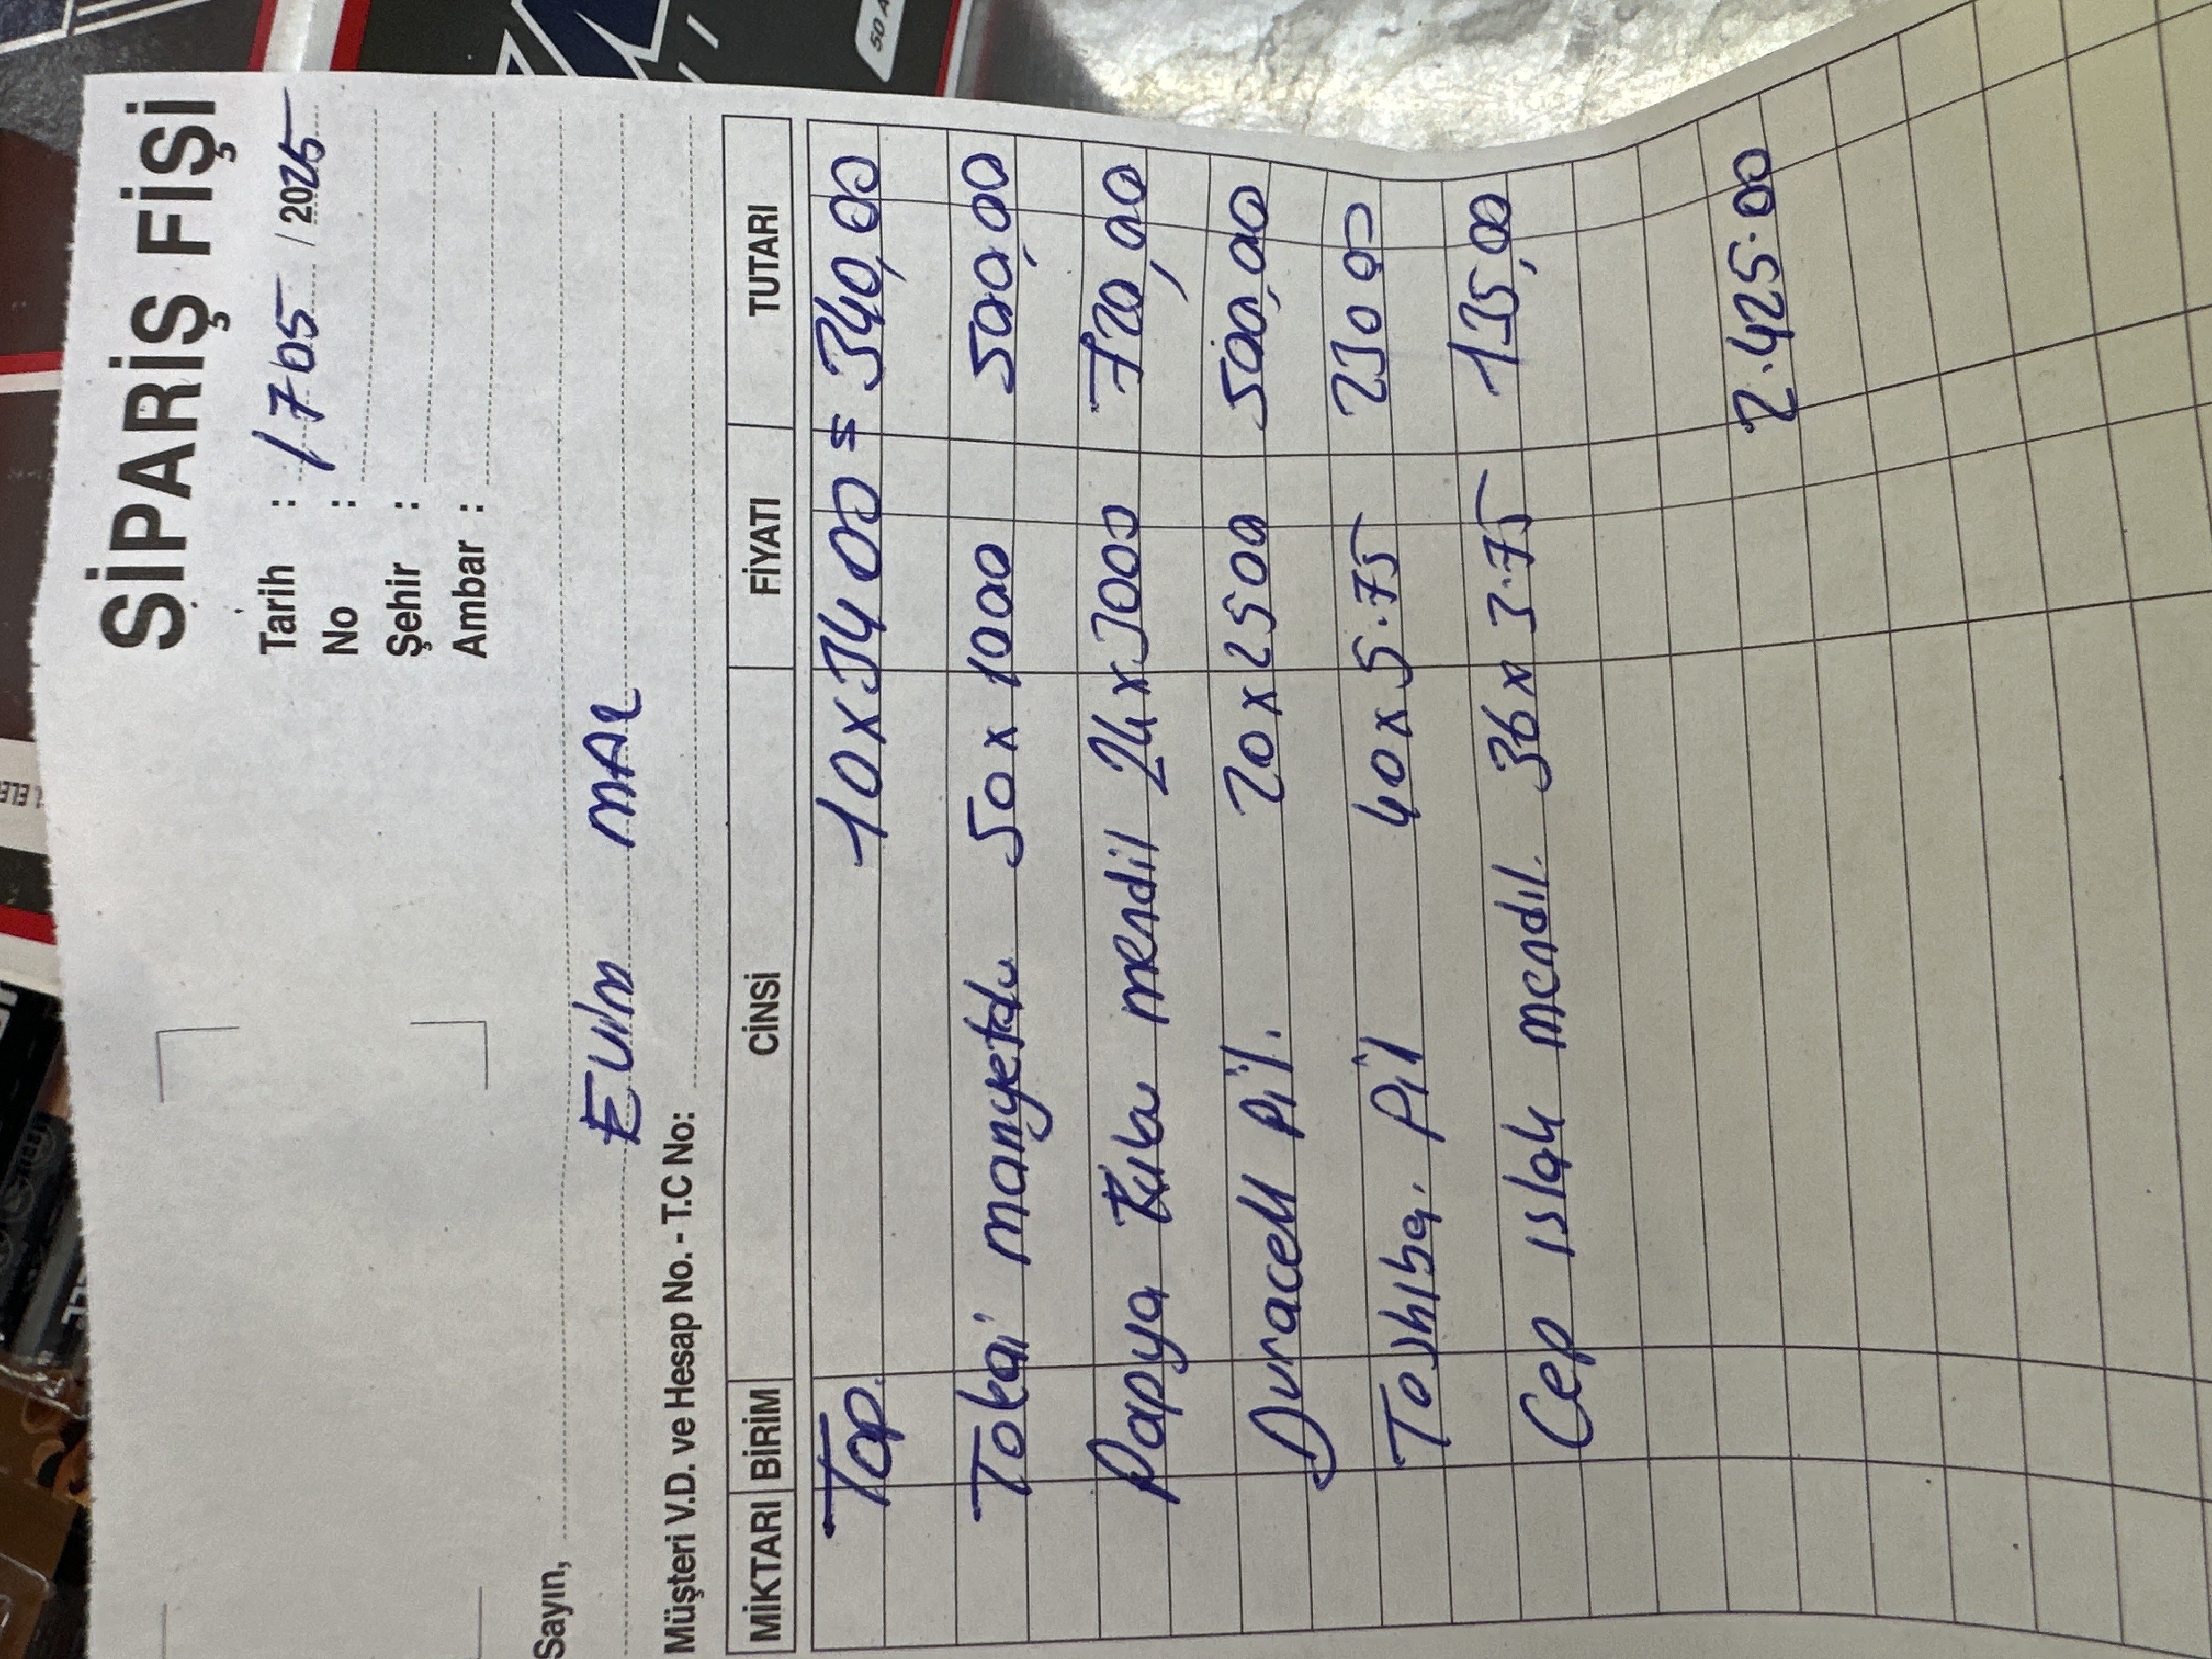 SİPARİŞ FİŞİ
Tarih : 1705 / 2025
No :
Şehir :
Ambar :
Sayın,
Evin MAL
Müşteri V.D. ve Hesap No. - T.C No:
MİKTARI BİRİM CİNSİ FİYATI TUTARI
Top. 10x34 00 = 340,00
Tokai manyetolu 50x1000 500,00
Papya Kutu mendil 24x3000 720,00
Duracell pil. 20x2500 500,00
Toshiba. pil 40x5.75 230 00
Cep ıslak mendil. 36x3.75 135,00
2.425.00
50 A